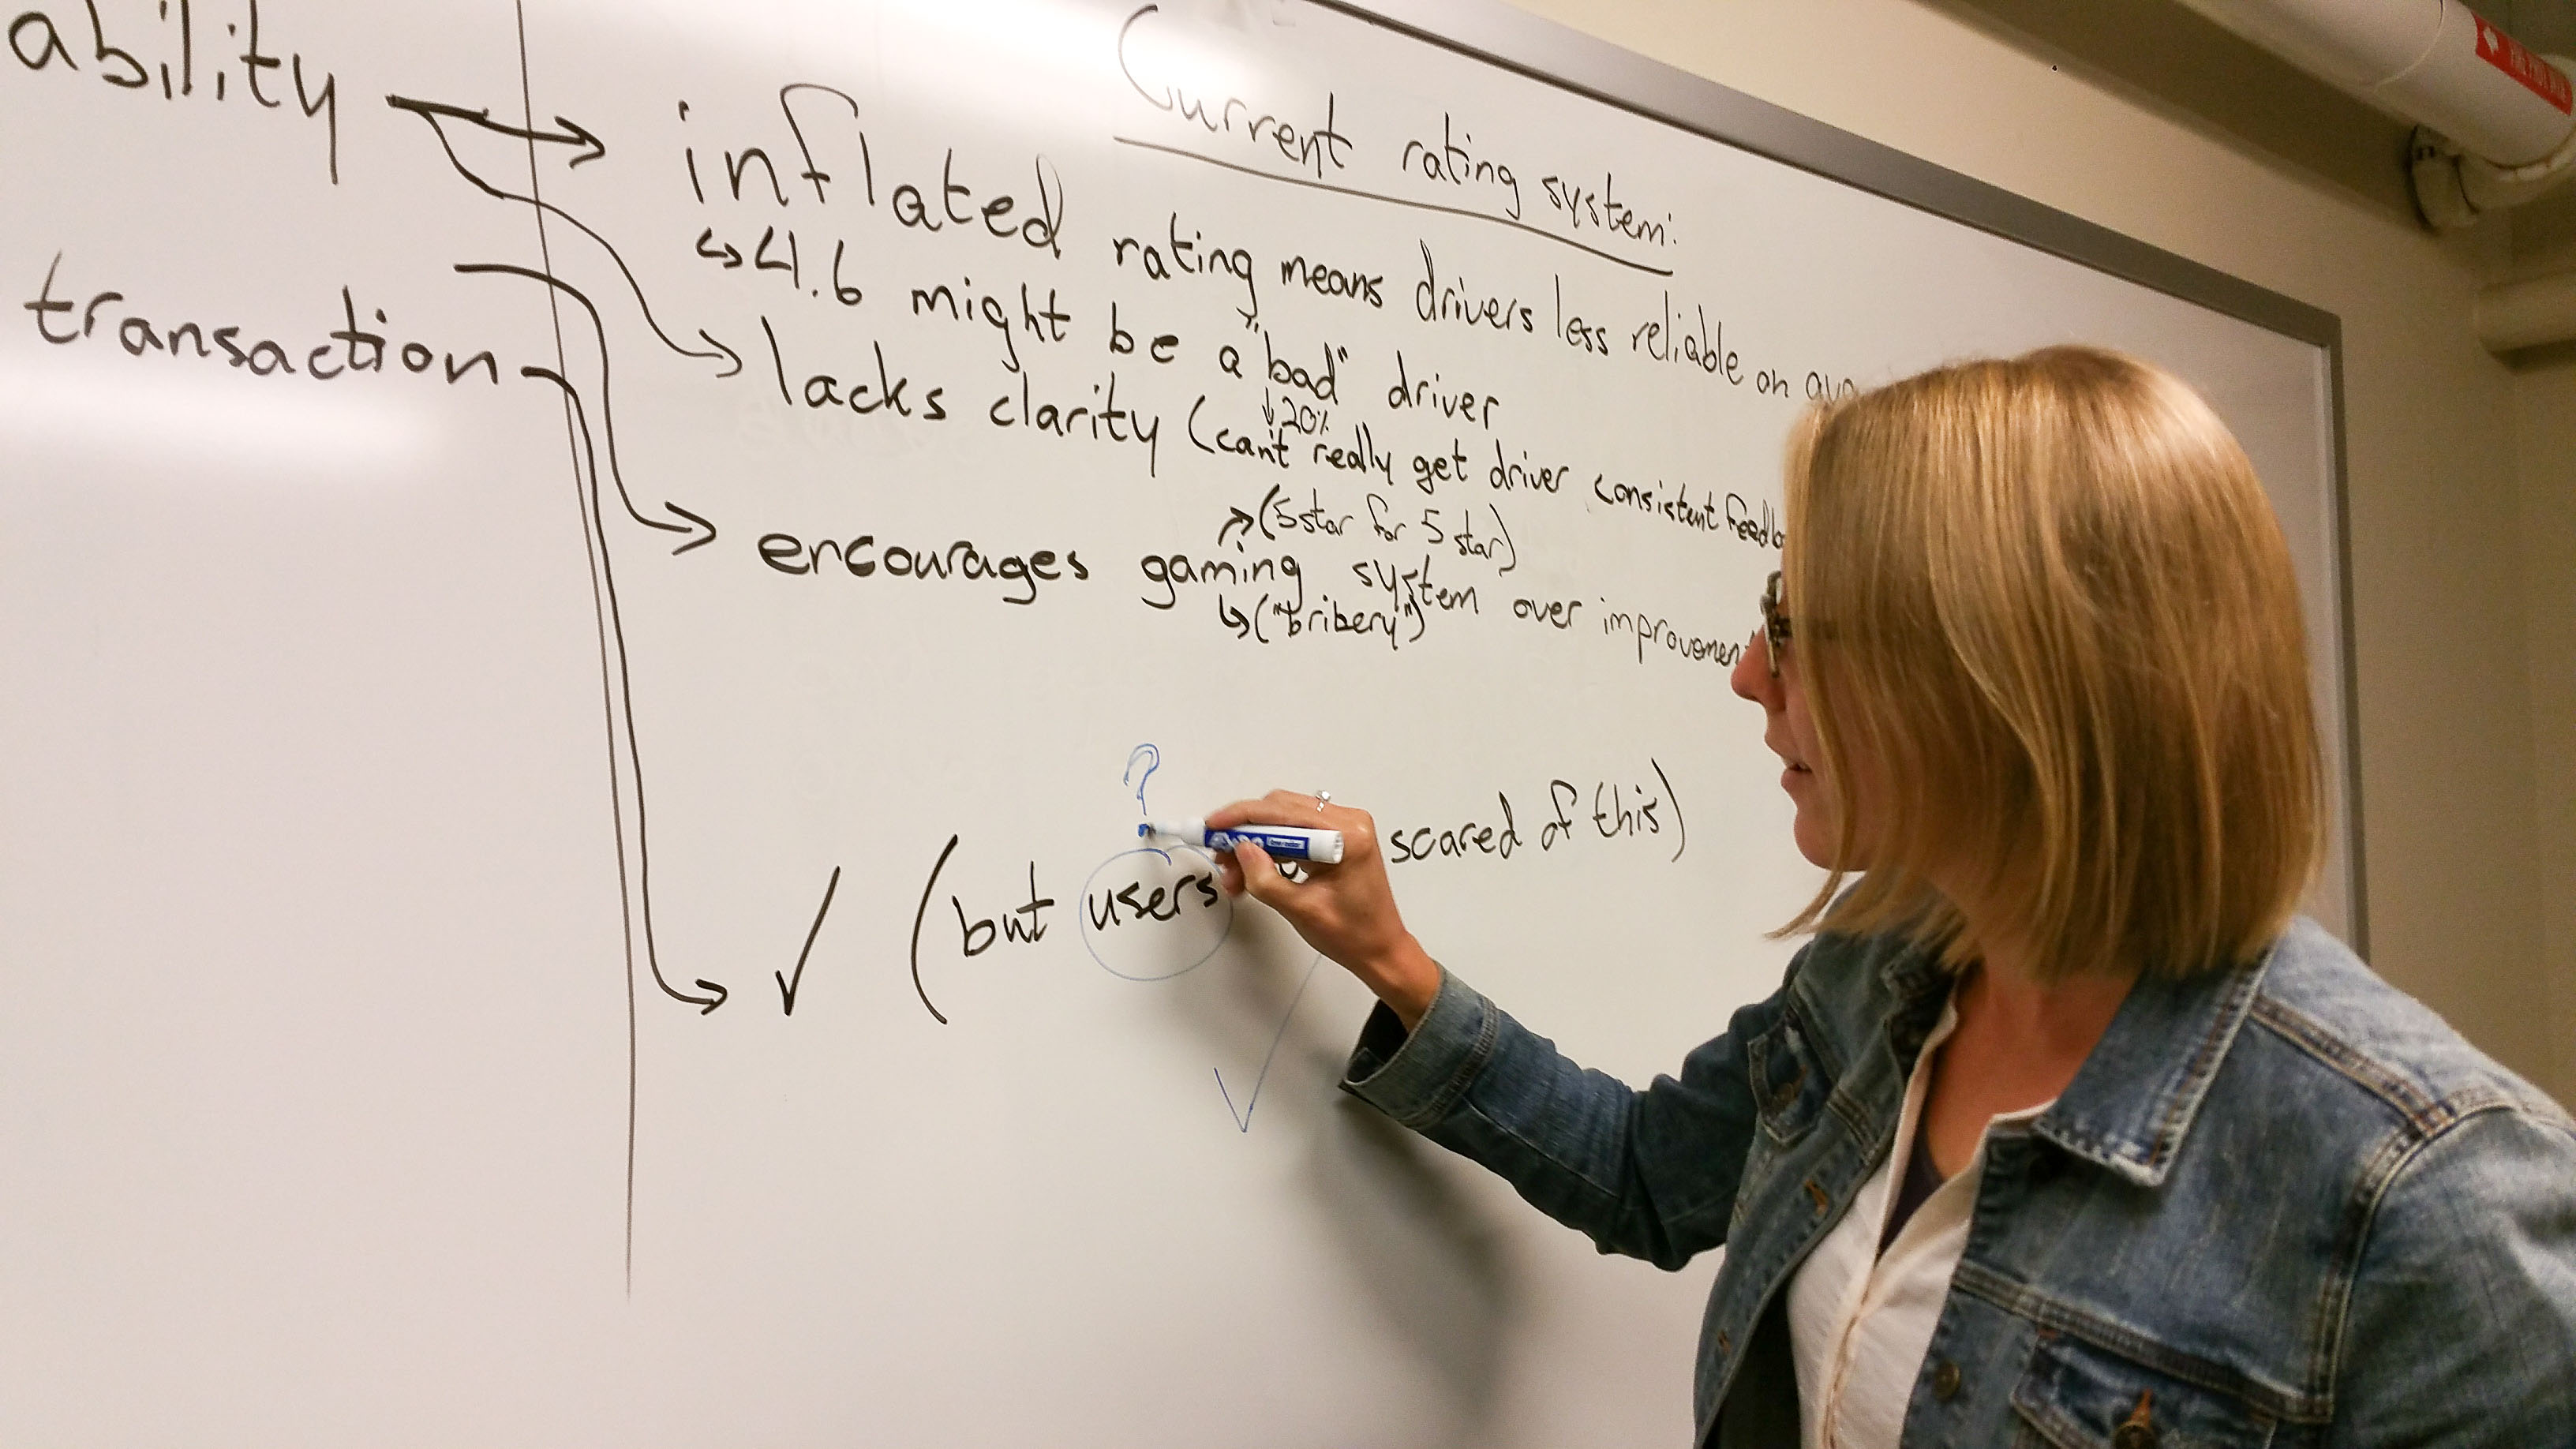 ability
transaction
Current rating system:
inflated rating means drivers less reliable on
↳ 4.6 might be a "bad" driver
↓20%
lacks clarity (can't really get driver consistent
(5 star for 5 star)
encourages gaming system over
↳ ("bribery")
?
✓ (but users scared of this)
✓